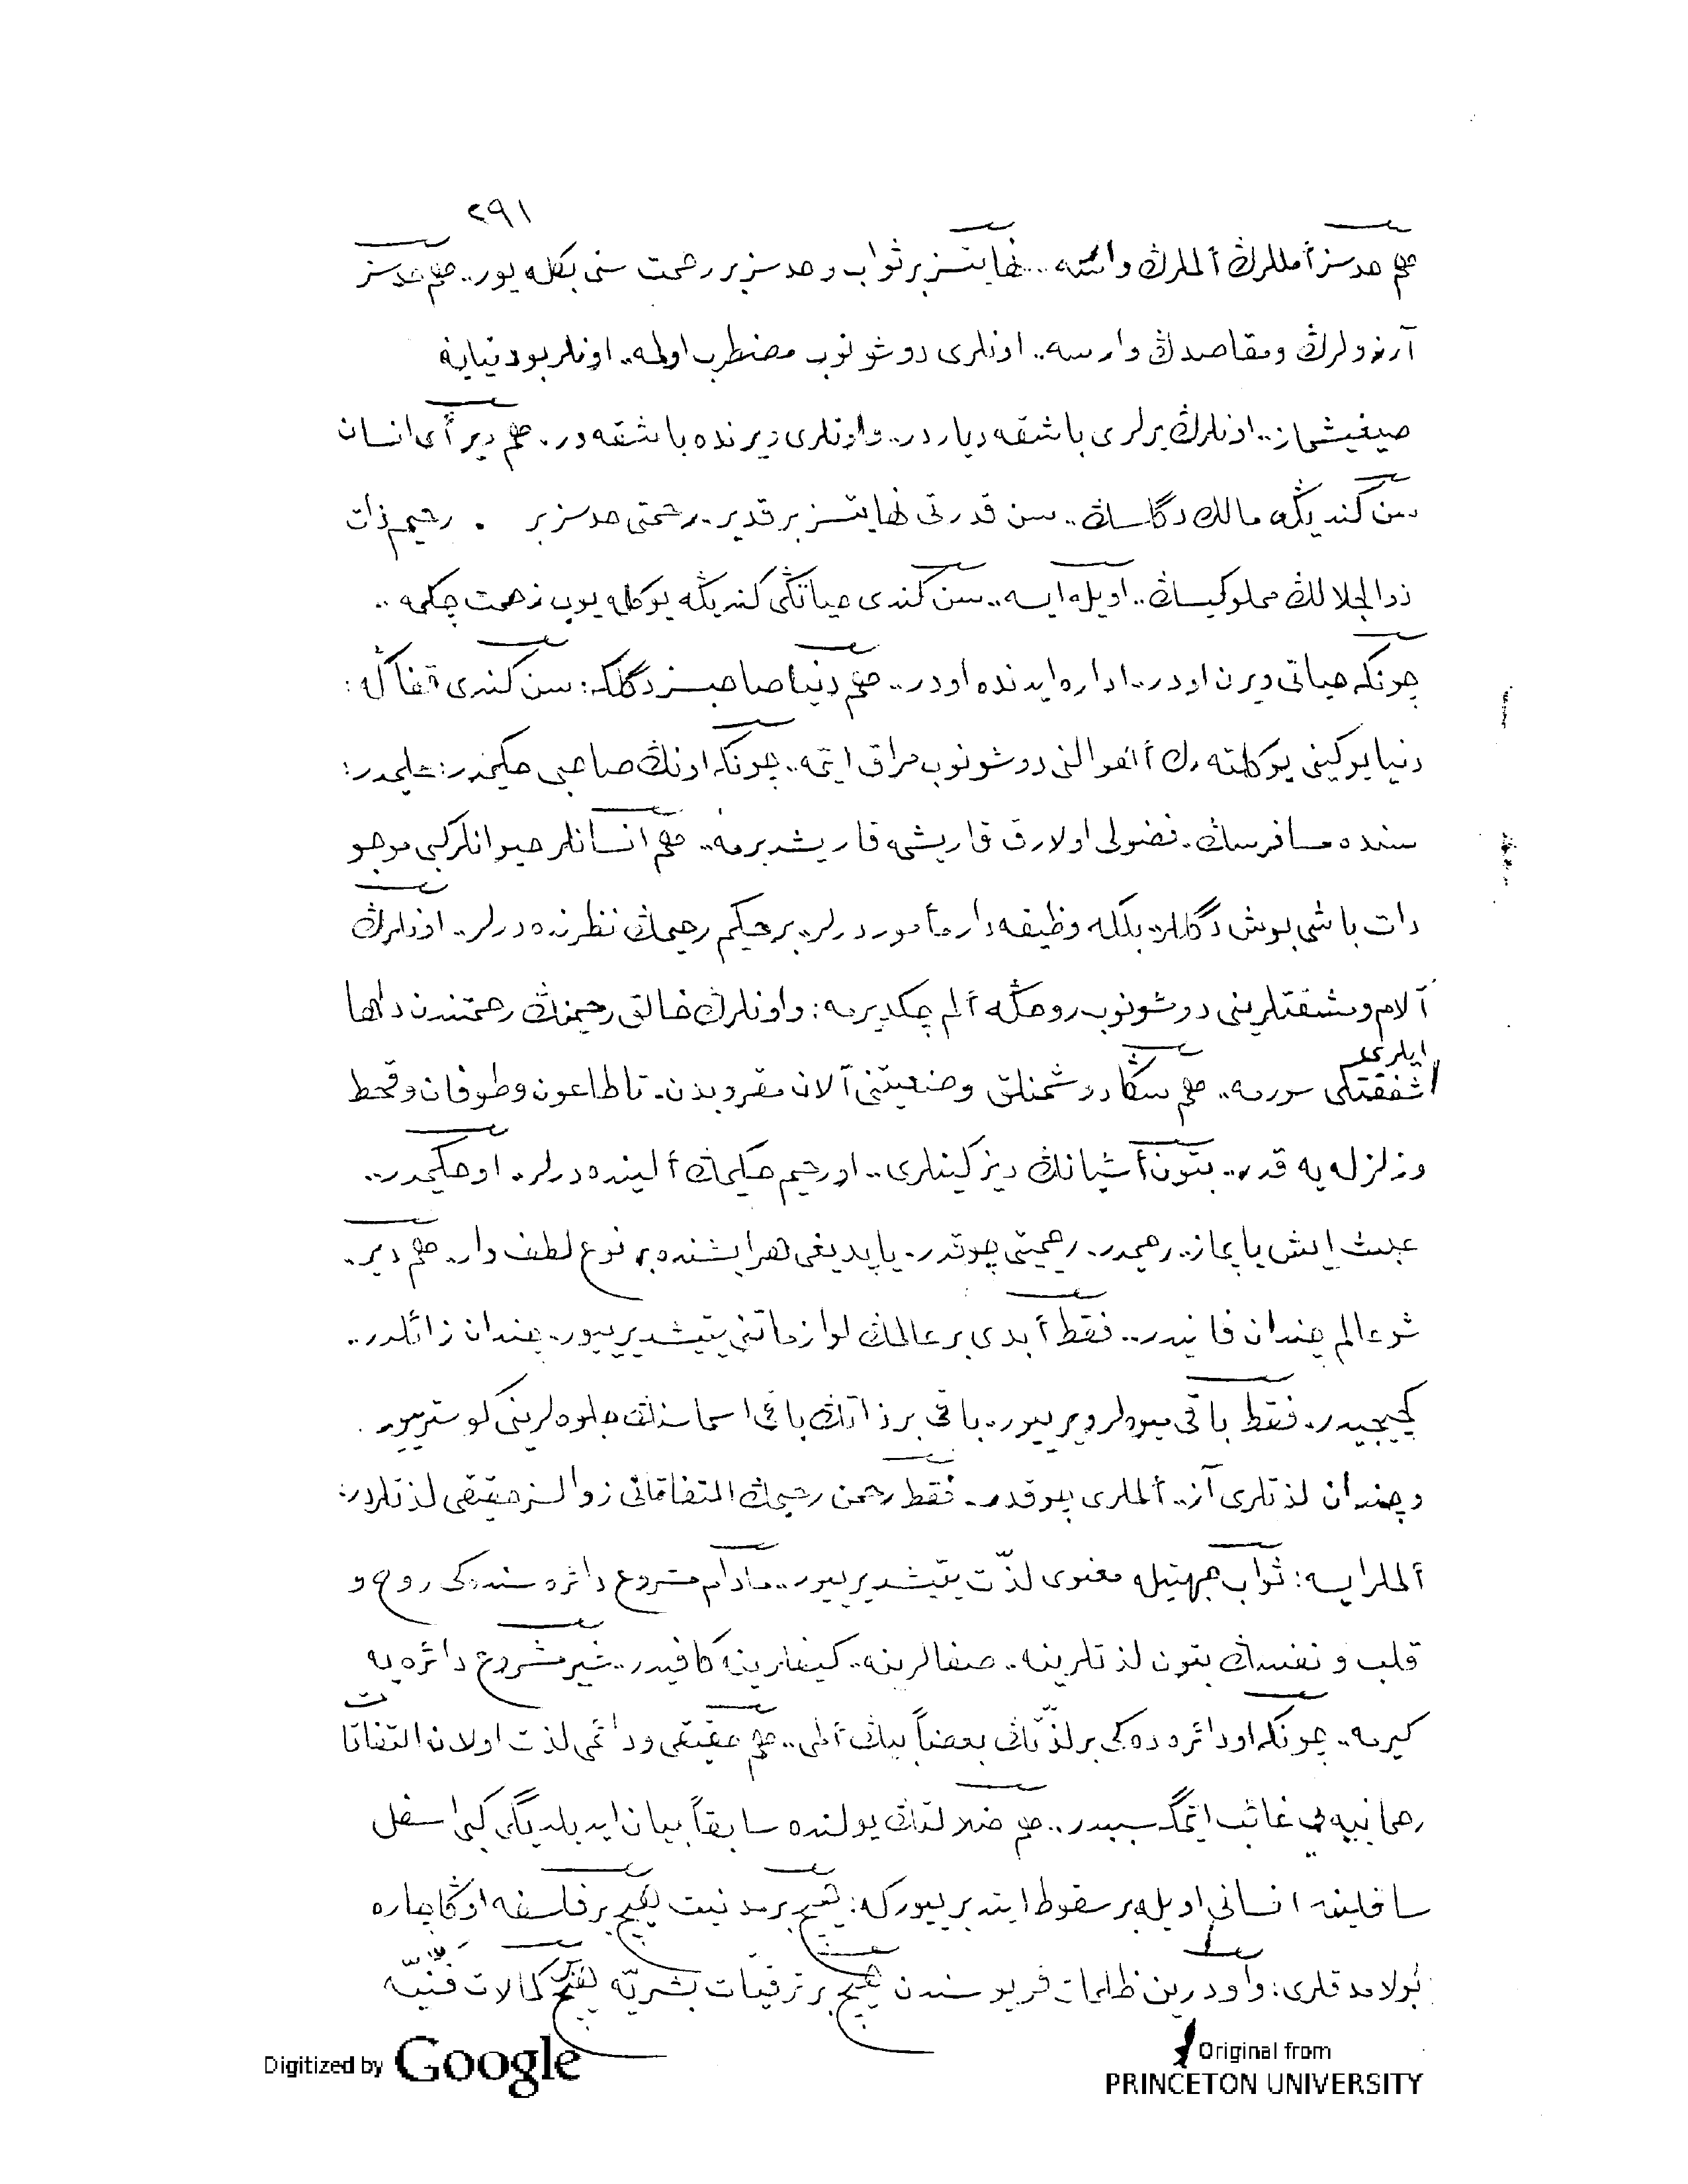 ٢٩١
هم حدسز أمللرڭ ألملرڭ وارسه.. نهايتسز بر ثواب و حدسز بر رحمت سنى بكله يور.. هم حدسز
آرزولرڭ ومقاصدڭ وارسه.. اونلرى دوشونوب مضطرب اولمه.. اونلر بو دنيايه
صيغيشماز.. اونلرڭ يرلرى باشقه دياردر.. واونلرى ويرنده باشقه در. هم دير أى انسان
سن كنديڭه مالك دگلسڭ.. سن قدرتى نهايتسز بر قدير.. رحمتى حدسز بر رحيم ذات
ذوالجلالڭ مملوكيسڭ.. اويله ايسه.. سن كندى حياتڭى كنديڭه يوكله يوب زحمت چكمه..
چونكه حياتى ويرن اودر.. اداره ايدنده اودر.. هم دنيا صاحبسز دگلكه: سن كندى قفاڭه:
دنيا يوكينى يوكلته رك أحوالنى دوشونوب مراق ايتمه.. چونكه اونڭ صاحبى حكيمدر: عليمدر:
سنده مسافرسڭ. فضولى اولارق قاريشمه قاريشديرمه.. هم انسانلر حيوانلر كبى موجو
دات باشى بوش دگللر.. بلكه وظيفه دار مأموردرلر.. بر حكيم رحيمڭ نظرنده درلر.. اونلرڭ
آلام ومشقتلرينى دوشونوب روحڭه ألم چكديرمه: واونلرڭ خالق رحيمنڭ رحمتندن داها
ايلرى
شفقتڭى سورمه.. هم سڭا دوشمنلق وضعيتنى آلان مقروبدن. تا طاعون وطوفان وقحط
وزلزله يه قدر.. بتون أشيانڭ ديزكينلرى.. او رحيم حكيمڭ ألينده درلر. او حكيمدر..
عبث ايش ياپماز.. رحيمدر. رحيميتى چوقدر. ياپديغى هر ايشنده بر نوع لطف وار. هم دير..
شو عالم چندان فانيدر.. فقط أبدى بر عالمڭ لوازماتنى يتيشديرييور. چندان زائلدر..
كچيجيدر. فقط باقى ميوه لر ويرييور. باقى بر ذاتڭ باقى اسماسنڭ جلوه لرينى كوسترييور.
وچندان لذتلرى آز.. ألملرى چوقدر. فقط رحمن رحيمڭ التفاتاتى زوالسز حقيقى لذتلردر:
ألملر ايسه: ثواب جهتيله معنوى لذّت يتيشديرييور.. مادام مشروع دائره سنده كى روح و
قلب و نفسڭ بتون لذتلرينه.. صفالرينه.. كيفلرينه كافيدر.. غير مشروع دائره يه
كيرمه.. چونكه او دائره ده كى بر لذّتڭ بعضاً بيڭ ألمى.. هم حقيقى ودائمى لذت اولان التفاتات
رحمانيه يى غائب ايتمگه سببدر.. هم ضلالتڭ يولنده سابقاً بيان ايديلديگى كبى اسفل
سافلينه انسانى اويله بر سقوط ايتديرييوركه: هيچ بر مدنيت هيچ بر فلسفه اوڭا چاره
بولامدقلرى: واودرين ظلمات قويوسندن هيچ بر ترقيات بشريّه هيچ بر كمالات فنّيّه
Digitized by Google
Original from
PRINCETON UNIVERSITY